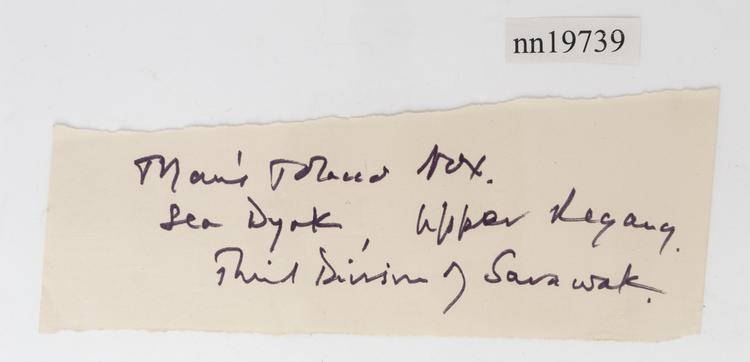 nn19739
Man's Tobacco Box.
Sea Dyak, Upper Regang.
Third Division of Sarawak.